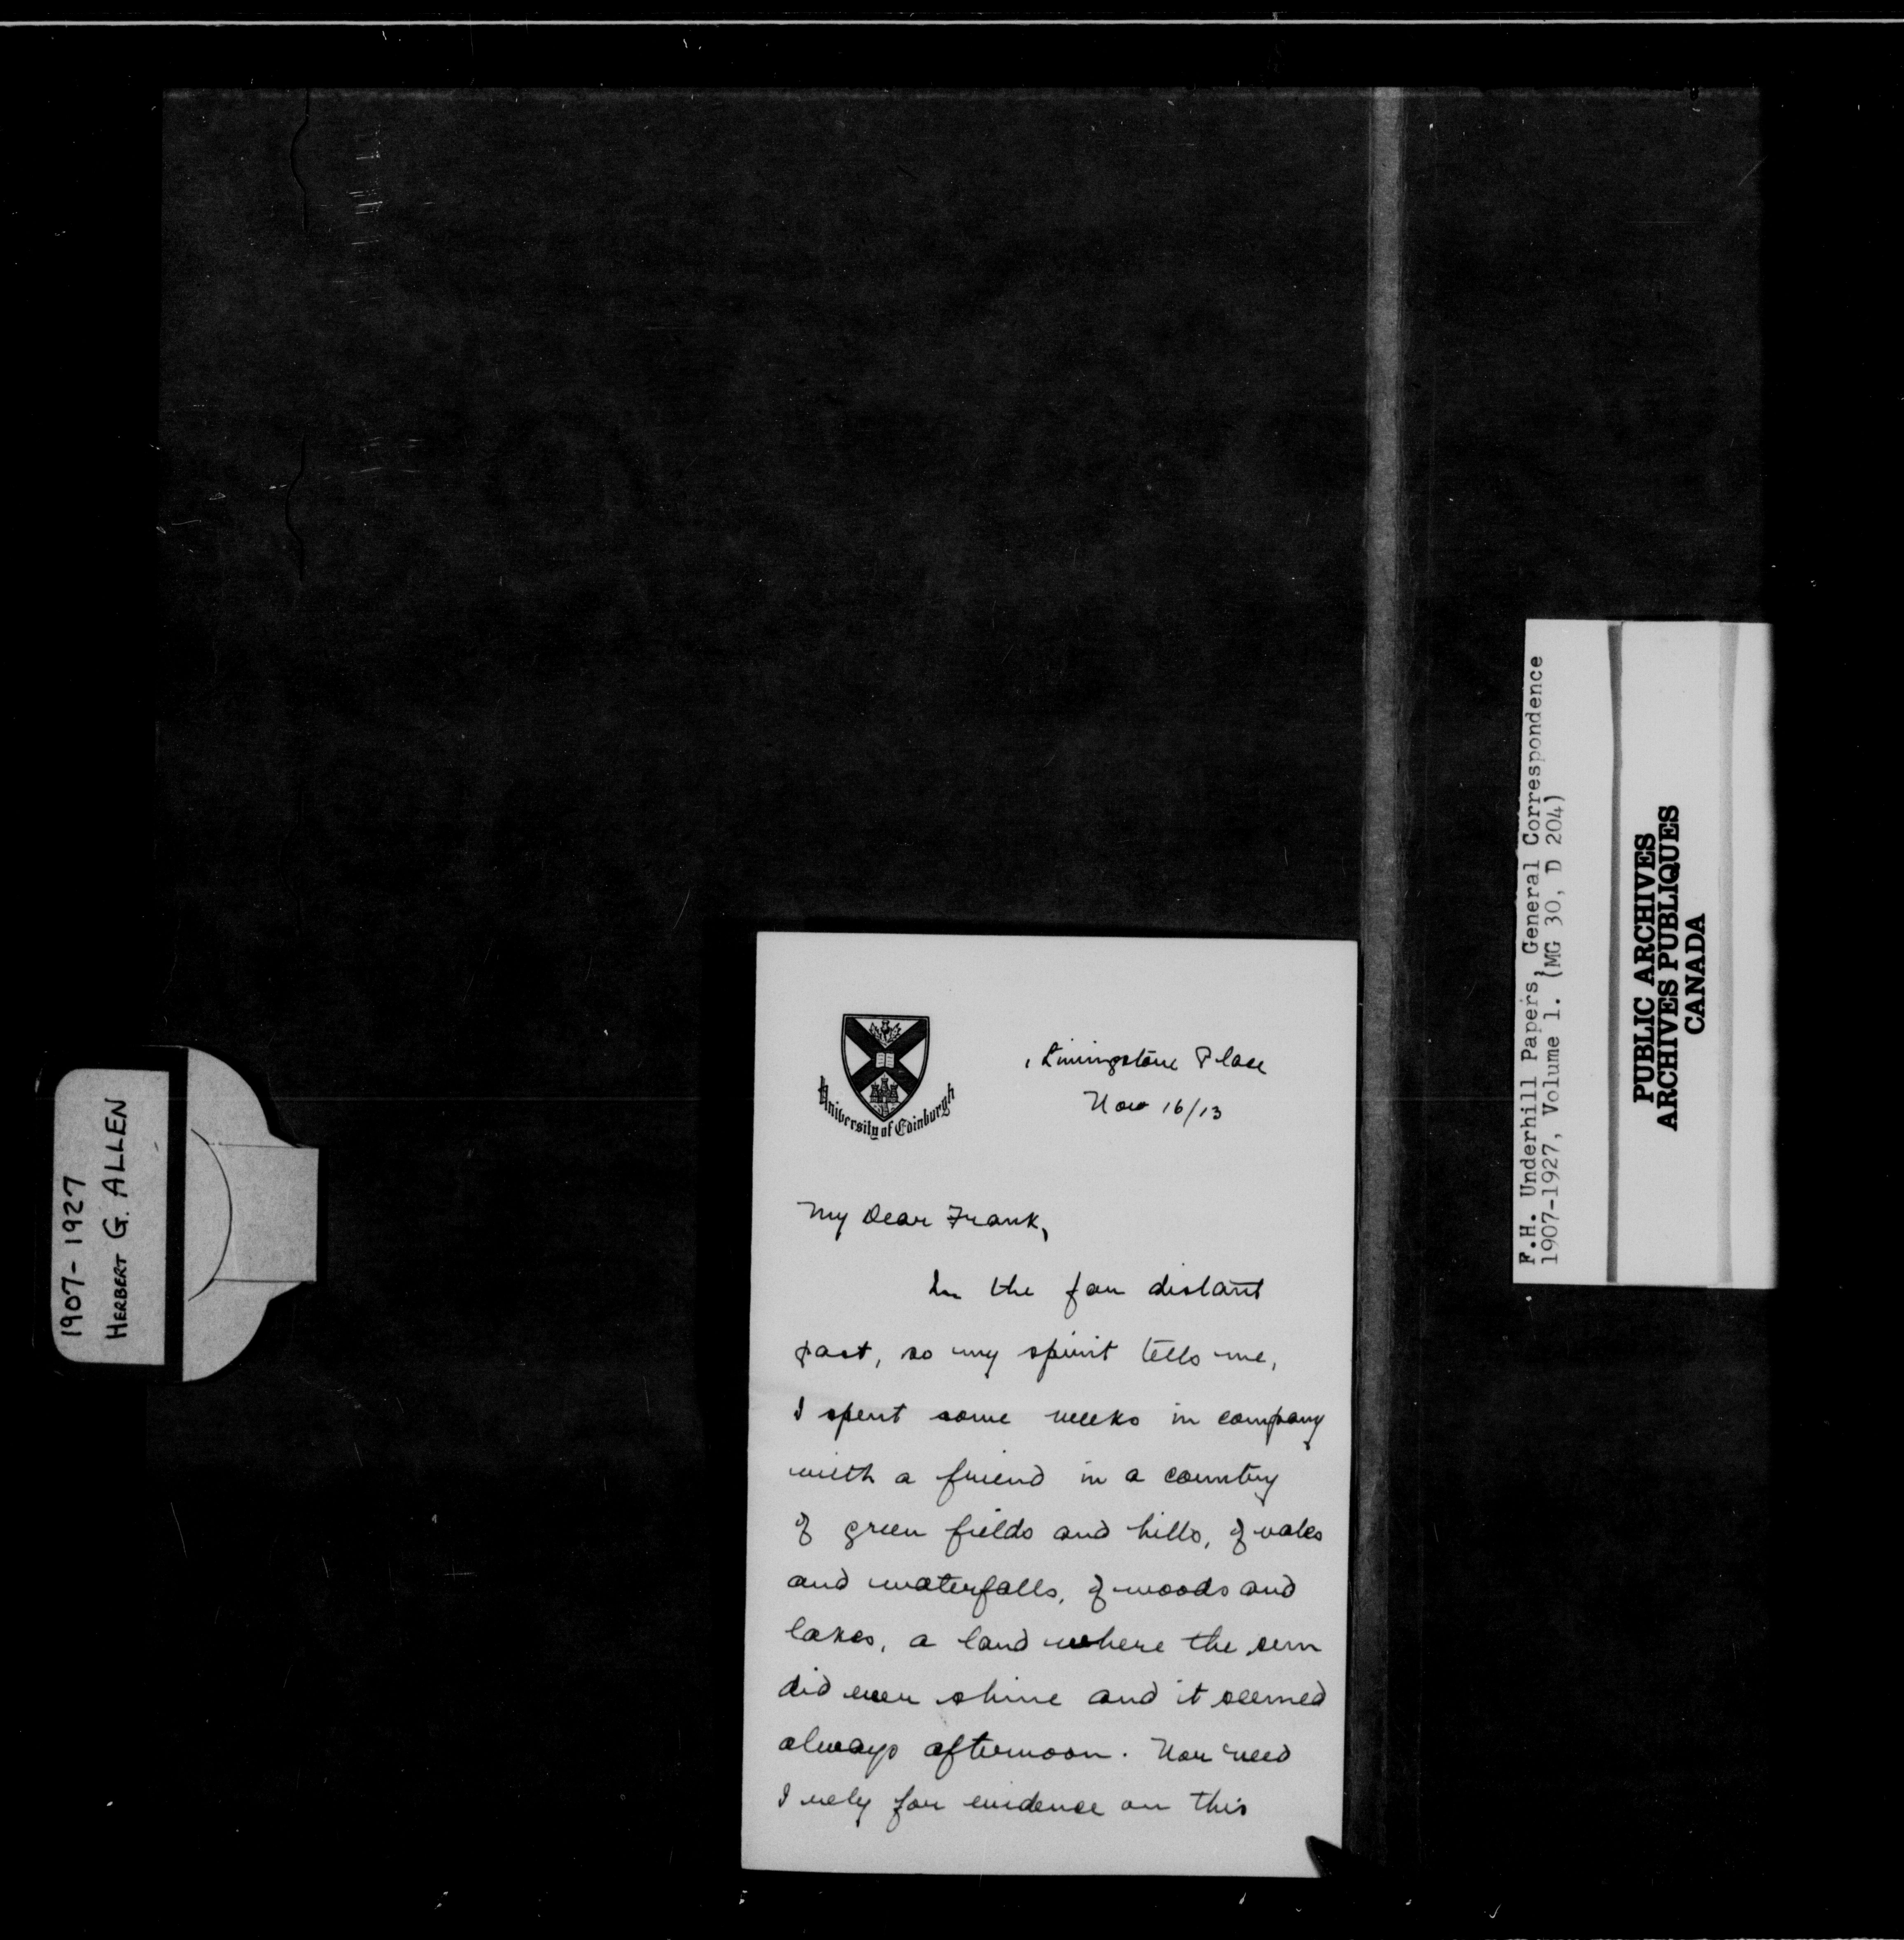 1907-1927
HERBERT G. ALLEN
University of Edinburgh
1 Livingstone Place
Nov 16/13
My Dear Frank,
In the far distant
past, so my spirit tells me,
I spent some weeks in company
with a friend in a country
of green fields and hills, of vales
and waterfalls, of woods and
lakes, a land where the sun
did ever shine and it seemed
always afternoon. Nor need
I rely for evidence on this
F.H. Underhill Papers, General Correspondence
1907-1927, Volume 1. (MG 30, D 204)
PUBLIC ARCHIVES
ARCHIVES PUBLIQUES
CANADA